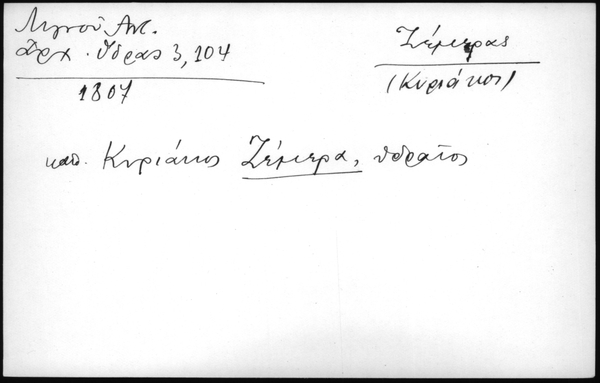 Λιγνού Αντ.
Αρχ. Ύδρας 3, 104
1807
Ζέμερας
(Κυριάκος)
καπ. Κυριάκος Ζέμερα, υδραίος